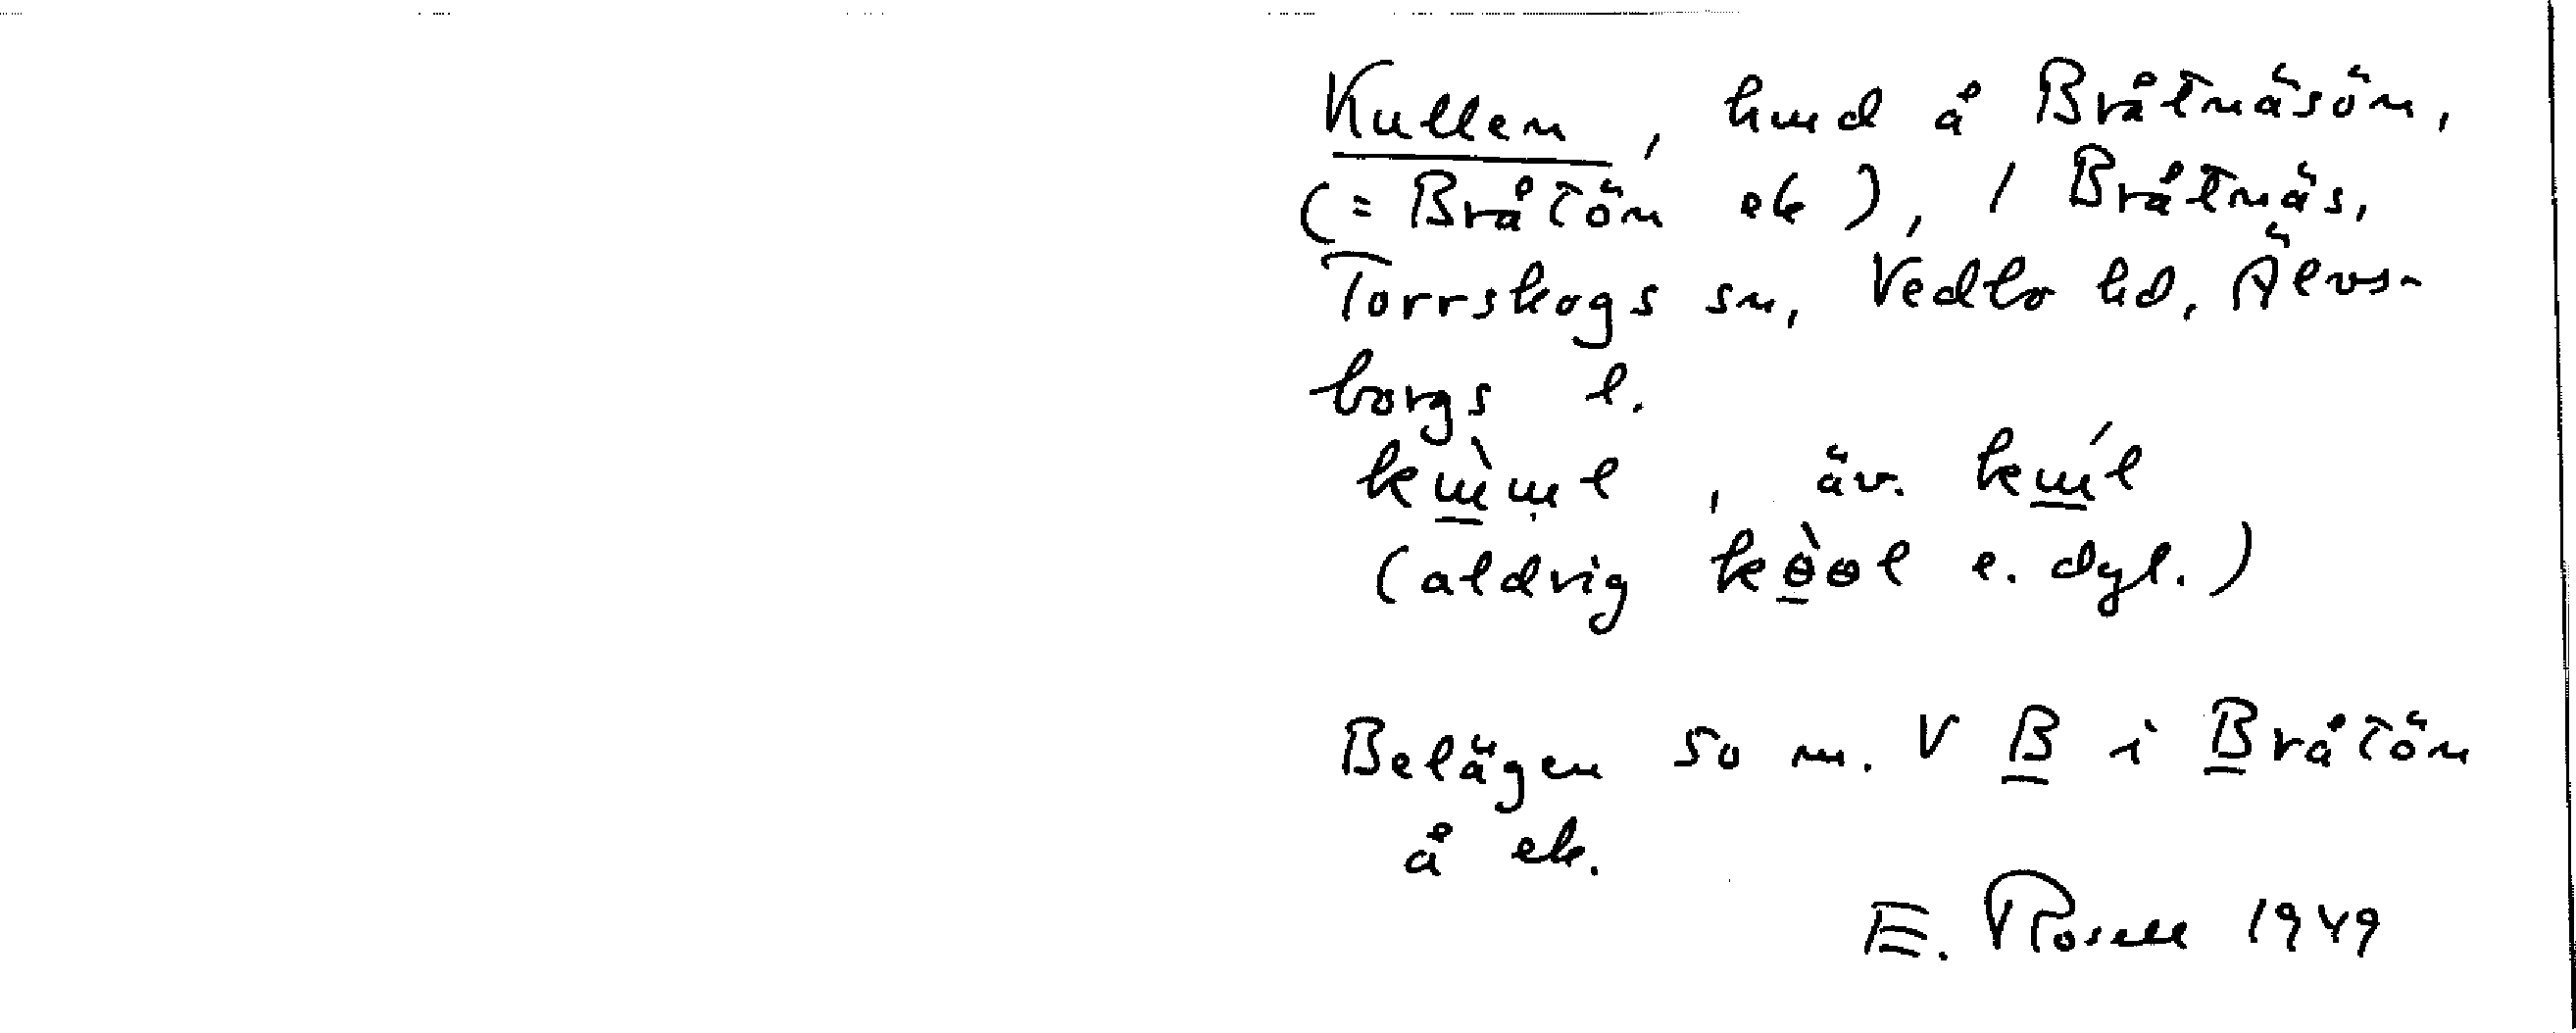 Kullen, hmd å Bråtnäsön,
(= Bråtön ek), 1 Bråtnäs,
Torrskogs sn, Vedbo hd, Älvs-
borgs l.
, äv.
(aldrig kòөl e. dyl.)
Belägen 50 m. V B i Bråtön
å ek.
E. Rosell 1949